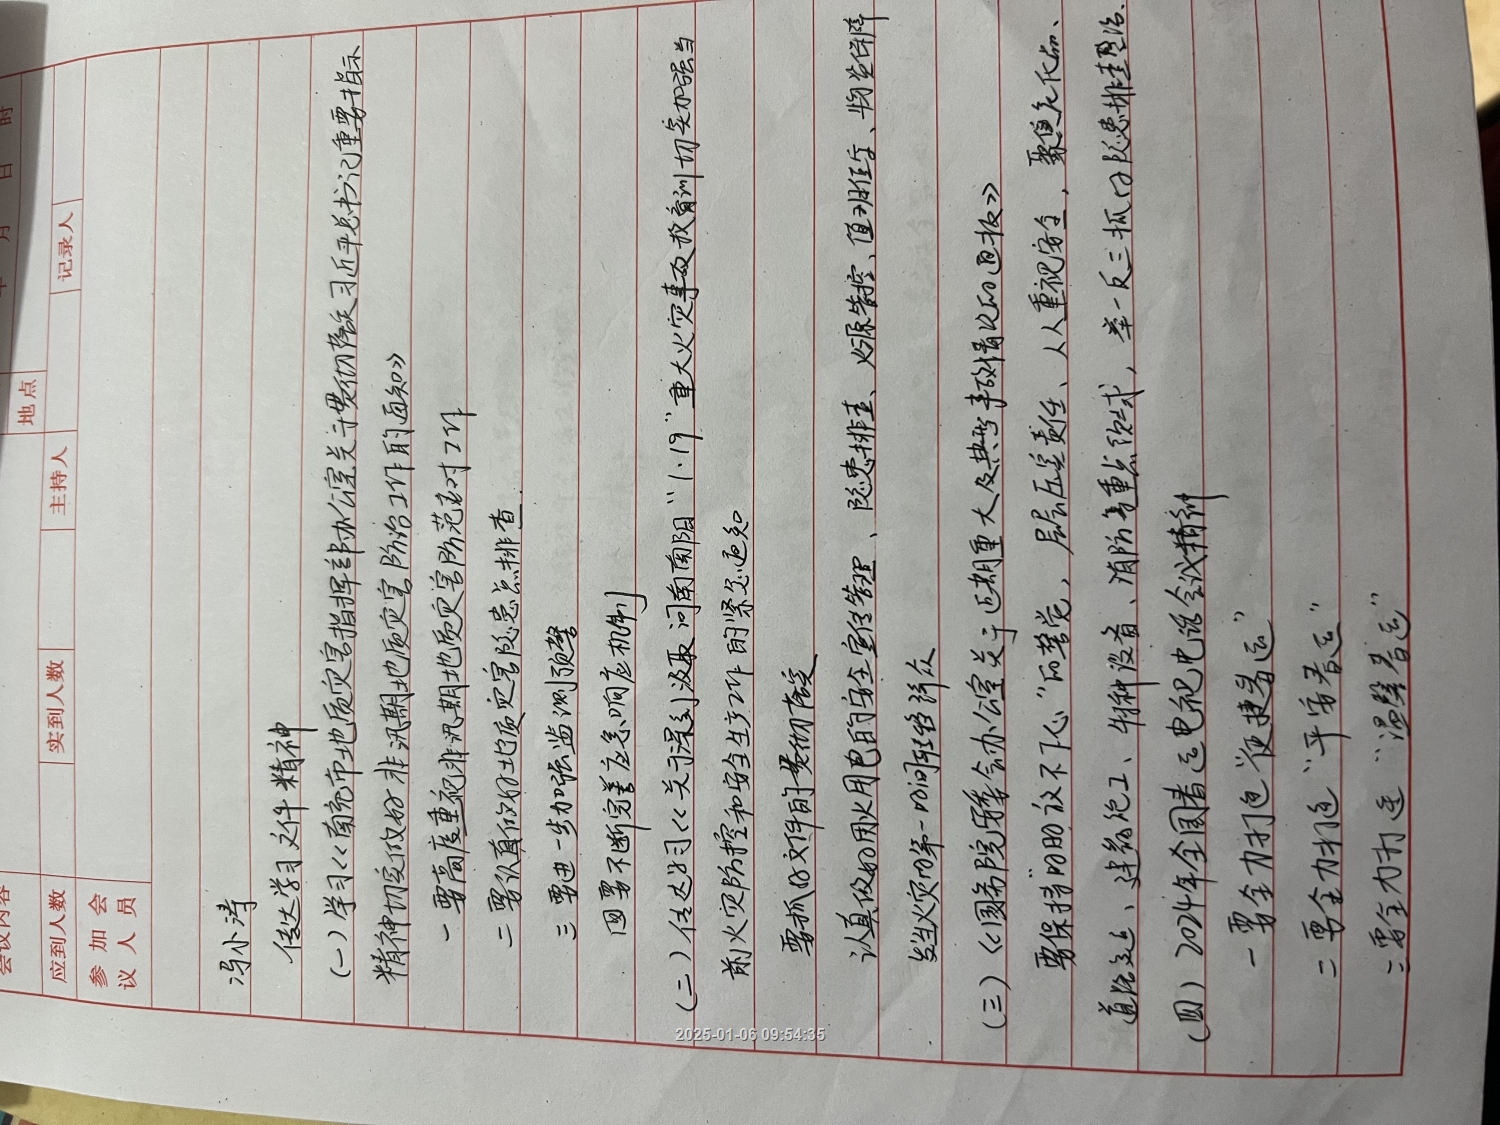 年 月 日 时
地点
会议内容
应到人数 实到人数 主持人 记录人
参加会
议人员
冯小涛
传达学习文件精神
(一)学习《南充市地质灾害指挥部办公室关于贯彻落实习近平总书记重要指示
精神切实做好非汛期地质灾害防治工作的通知》
一要高度重视非汛期地质灾害防范应对工作
二要认真做好地质灾害隐患点排查
三要进一步加强监测预警
四要不断完善应急响应机制
(二)传达学习《关于深刻汲取河南南阳“1·19”重大火灾事故教训切实加强当
前火灾防控和安全生产工作的紧急通知
要抓好文件的贯彻落实
认真做好用火用电的安全宣传管理、隐患排查、火源管控、值班值守、物资保障
发生火灾第一时间转移群众
(三)《国务院安委会办公室关于近期重大及典型事故情况的通报》
要保持“时时放不下心”的警觉，层层压实责任、人人重视安全，聚焦危化品、
道路交通、建筑施工、特种设备、消防等重点领域，举一反三抓好隐患排查整治.
(四)2024年全国春运电视电话会议精神
一要全力打造“便捷春运”
二要全力打造“平安春运”
三要全力打造“温馨春运”
2025-01-06 09:54:35